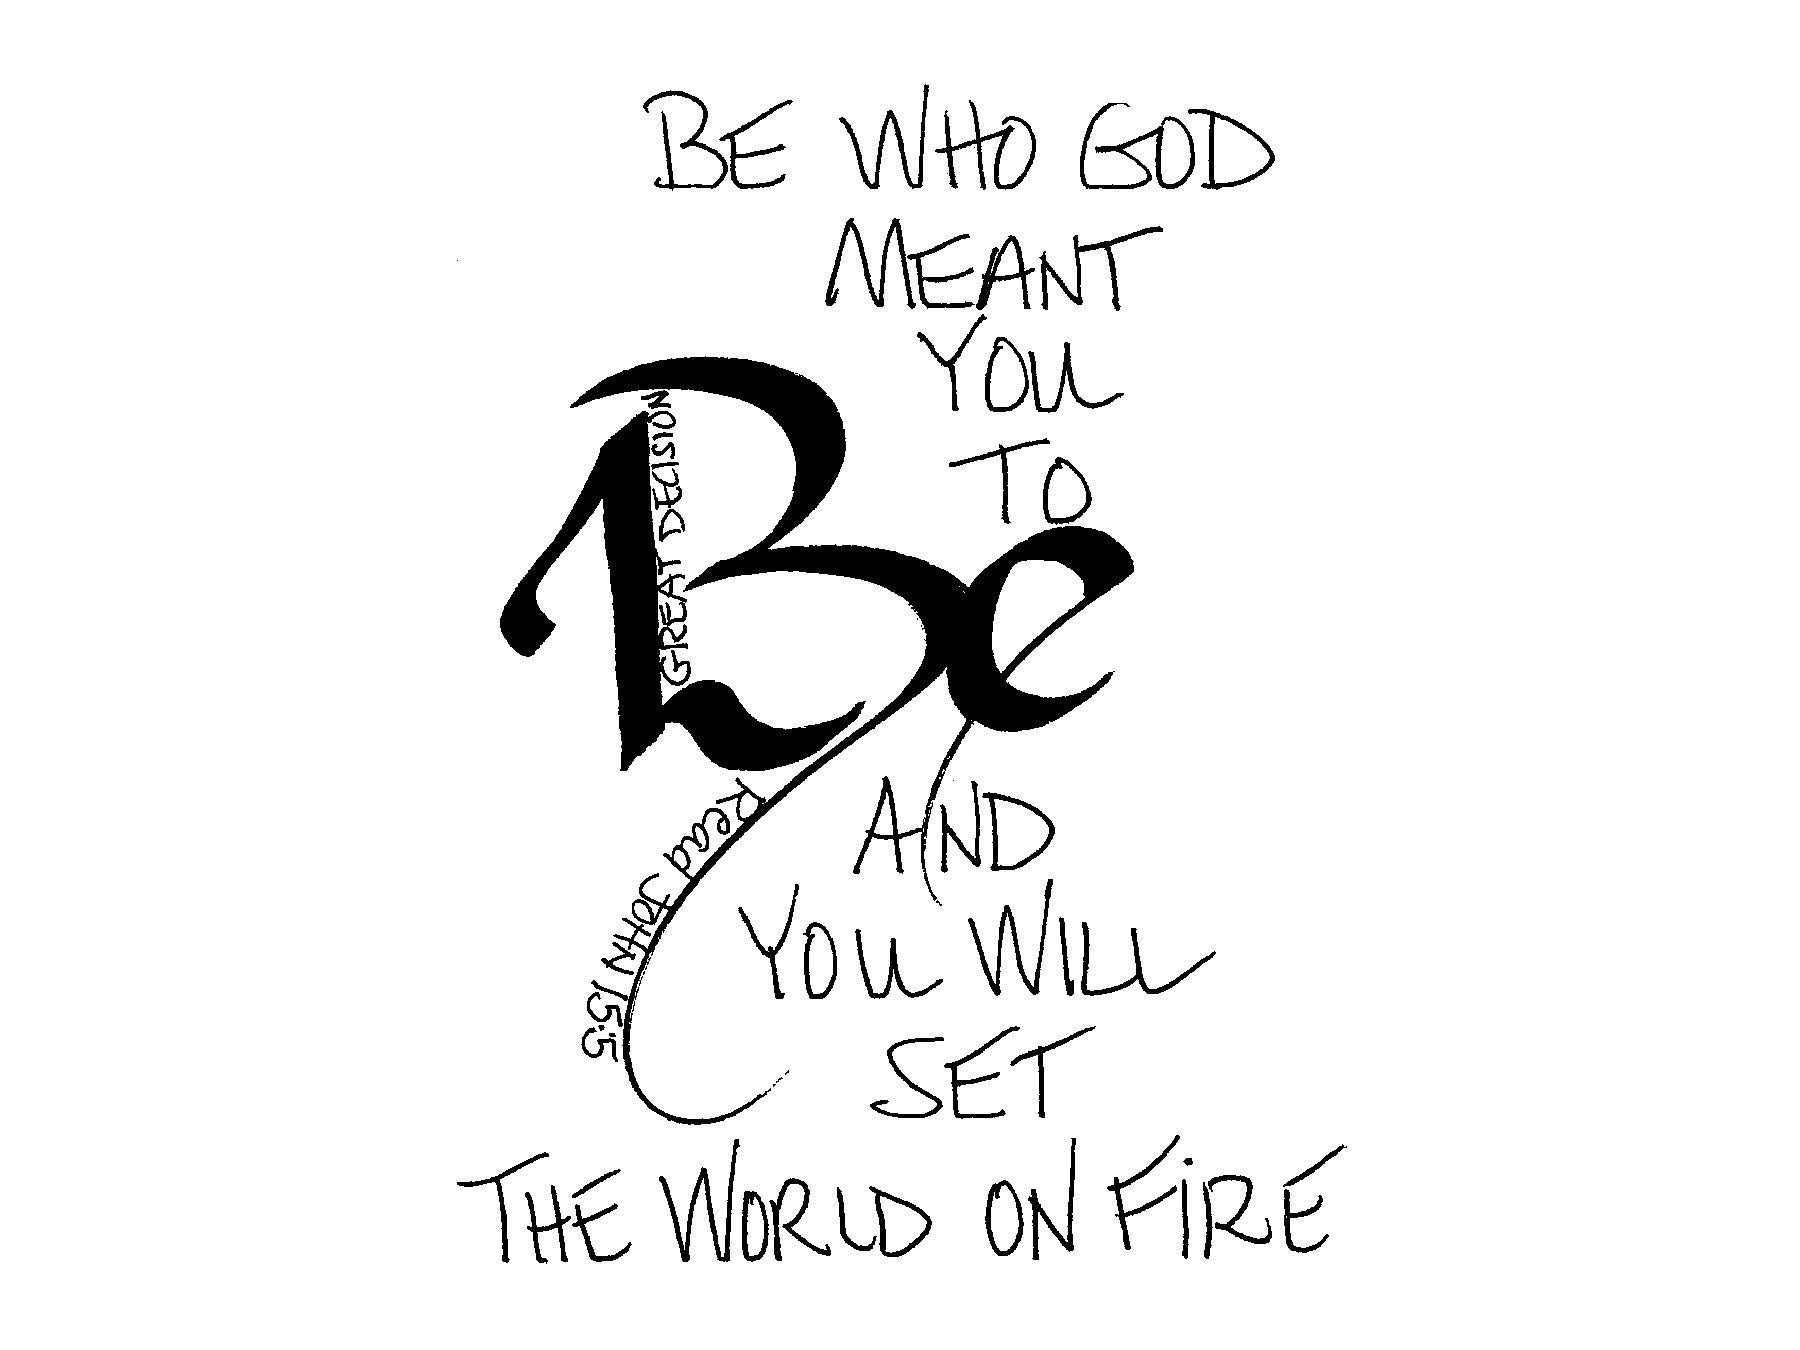 BE WHO GOD
MEANT
YOU
TO
Be
GREAT DECISION
Read JOHN 15:5
AND
YOU WILL
SET
THE WORLD ON FIRE